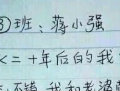 ③班:蒋小强
<=十年后的我
不错,我和老婆